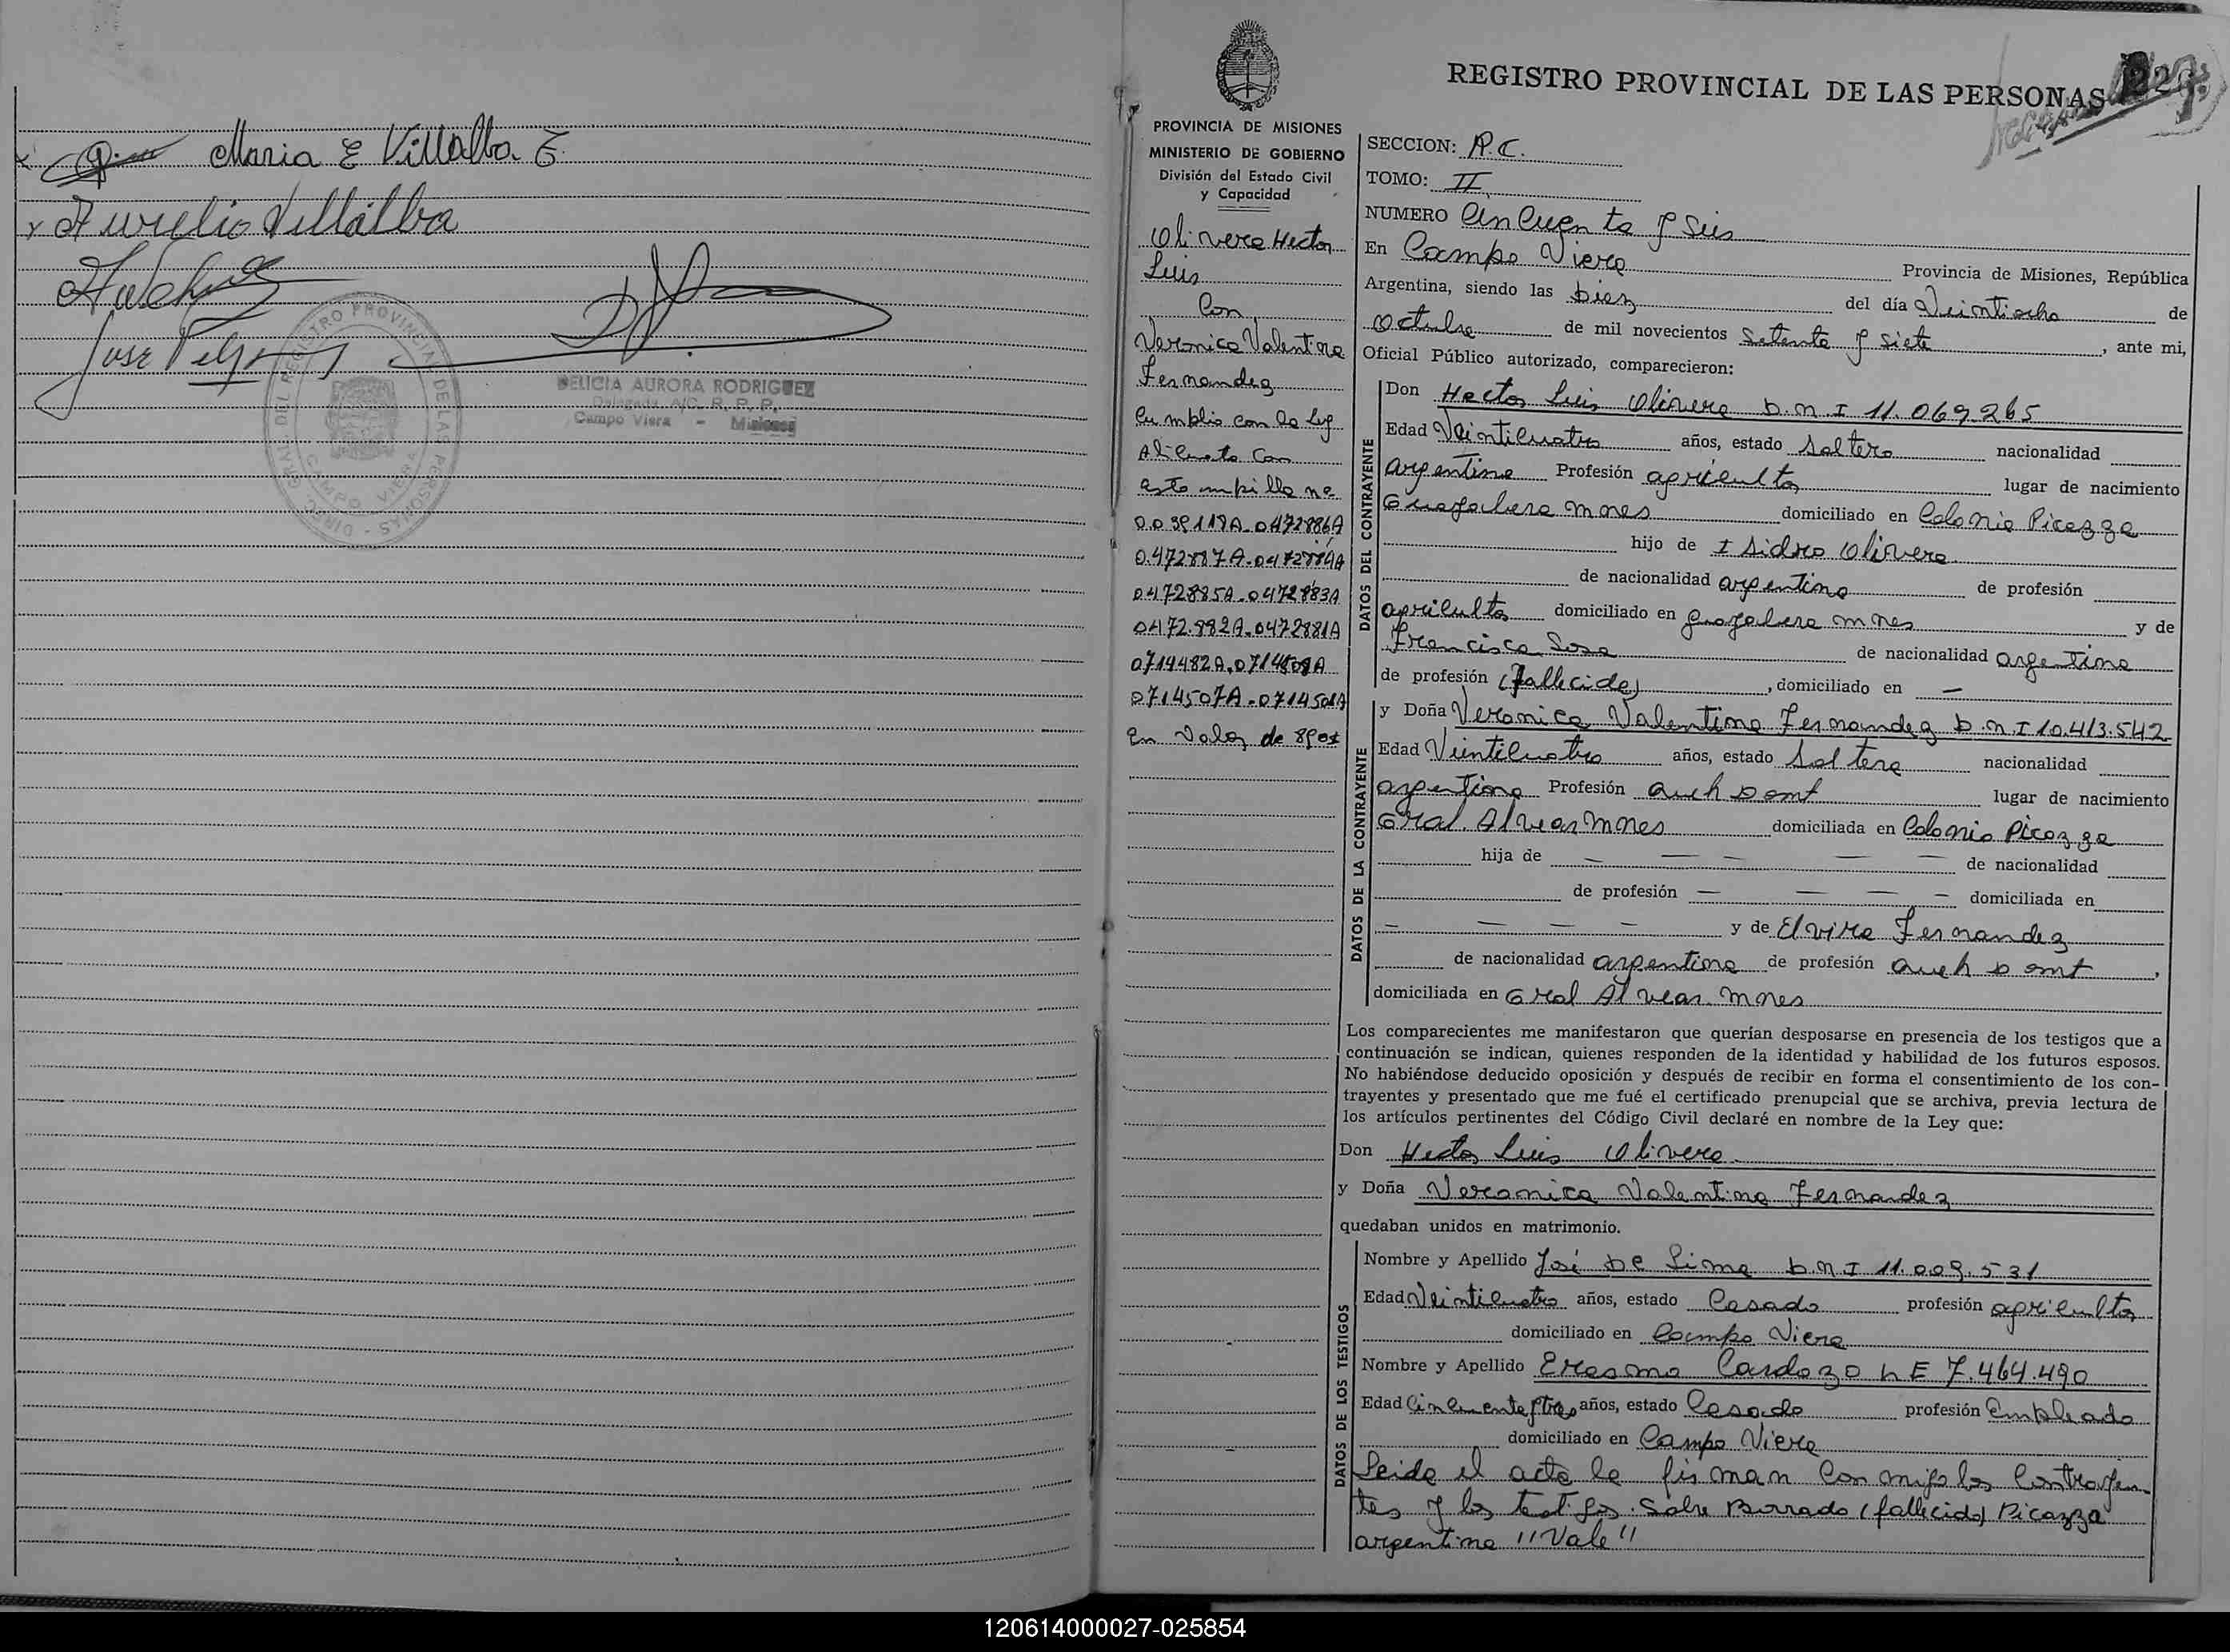 Maria E Villalba F.
Aurelio Villalba
Jose
DIREC. GRAL. DEL REGISTRO PROVINCIAL DE LAS PERSONAS -
CAMPO VIERA
DELICIA AURORA RODRIGUEZ
Delegada A/C. R. P. P.
Campo Viera - Misiones
REGISTRO PROVINCIAL DE LAS PERSONAS
PROVINCIA DE MISIONES
MINISTERIO DE GOBIERNO
División del Estado Civil
y Capacidad
Olivera Hector
Luis
Con
Veronica Valentina
Fernandez
Cumplio con la ley
Alicuota Con
estampilla na
0472887A-
0472885A-0472883A
0472.882A-0472881A
0714482A.
0714507A-
en Valor de
SECCION: R.C.
TOMO: II
NUMERO Cincuenta y Seis
En Campo Viera Provincia de Misiones, República
Argentina, siendo las Diez del día Veintiocho de
Octubre de mil novecientos Setenta y Siete, ante mi,
Oficial Público autorizado, comparecieron:
DATOS DEL CONTRAYENTE
Don Hector Luis Olivera D.N.I 11.069.265
Edad Veinticuatro años, estado Soltero nacionalidad
argentina Profesión agricultor lugar de nacimiento
Guayabera Mnes domiciliado en Colonia Picazza
hijo de Isidro Olivera
de nacionalidad argentina de profesión
agricultor domiciliado en Guayabera Mnes y de
Francisca Sosa de nacionalidad argentina
de profesión (fallecida), domiciliado en —
DATOS DE LA CONTRAYENTE
y Doña Veronica Valentina Fernandez D.N.I 10.413.542
Edad Veinticuatro años, estado Soltera nacionalidad
argentina Profesión queh Domt lugar de nacimiento
Gral. Alvear Mnes domiciliada en Colonia Picazza
hija de — — — — — de nacionalidad
de profesión — — — — domiciliada en
— — — — y de Elvira Fernandez
de nacionalidad argentina de profesión queh Domt,
domiciliada en Gral Alvear Mnes
Los comparecientes me manifestaron que querían desposarse en presencia de los testigos que a
continuación se indican, quienes responden de la identidad y habilidad de los futuros esposos.
No habiéndose deducido oposición y después de recibir en forma el consentimiento de los con-
trayentes y presentado que me fué el certificado prenupcial que se archiva, previa lectura de
los artículos pertinentes del Código Civil declaré en nombre de la Ley que:
Don Hector Luis Olivera
y Doña Veronica Valentina Fernandez
quedaban unidos en matrimonio.
DATOS DE LOS TESTIGOS
Nombre y Apellido José De Lima D.N.I 11.009.531
Edad Veinticuatro años, estado Casado profesión agricultor
domiciliado en Campo Viera
Nombre y Apellido Erasmo Cardozo L E 7.464.490
Edad Cincuenta y tres años, estado Casado profesión Empleado
domiciliado en Campo Viera
Leida el acta la firman conmigo los Contrayen-
tes y los testigos. Sobre Borrado (fallecido) Picazza
argentina "Vale"
120614000027-025854